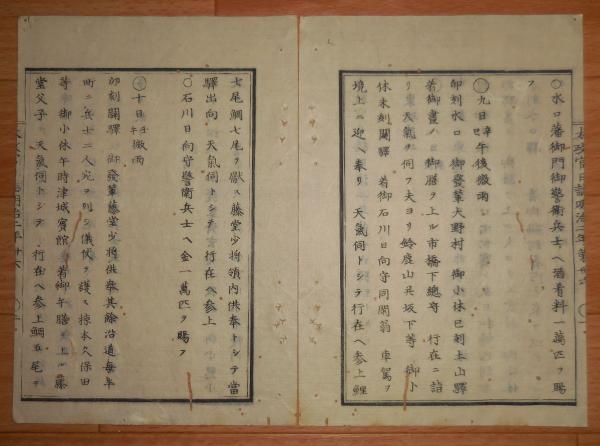 ○水口藩御門御警衛兵士ヘ酒肴料一萬匹ヲ賜
フ
○九日辛巳午後微雨
卯刻水口 御發輦大野村 御小休巳刻土山驛
着御晝ノ 御膳ヲ上ル市橋下總守 行在ニ詣
リ 天氣ヲ伺フ夫ヨリ鈴鹿山共坂下等 御小
休未刻關驛 着御石川日向守同関翁 車駕ヲ
境上ニ迎ヘ奉リ 天氣伺トシテ行在ヘ參上鯉
七尾鯛七尾ヲ獻ス藤堂少將領内供奉トシテ當
驛出向 天氣伺トシテ 行在ヘ參上
○石川日向守警衛兵士ヘ金一萬匹ヲ賜フ
○十日壬午微雨
卯刻關驛 御發輦藤堂少將供奉其餘沿道毎半
町ニ兵士二人宛ヲ列シ儀伏ヲ護ス椋本久保田
等 御小休午時津城賓館ニ着御午膳ヲ上ル藤
堂父子 天氣伺トシテ 行在ヘ參上鯛五尾ヲ
太政官日誌明治二年